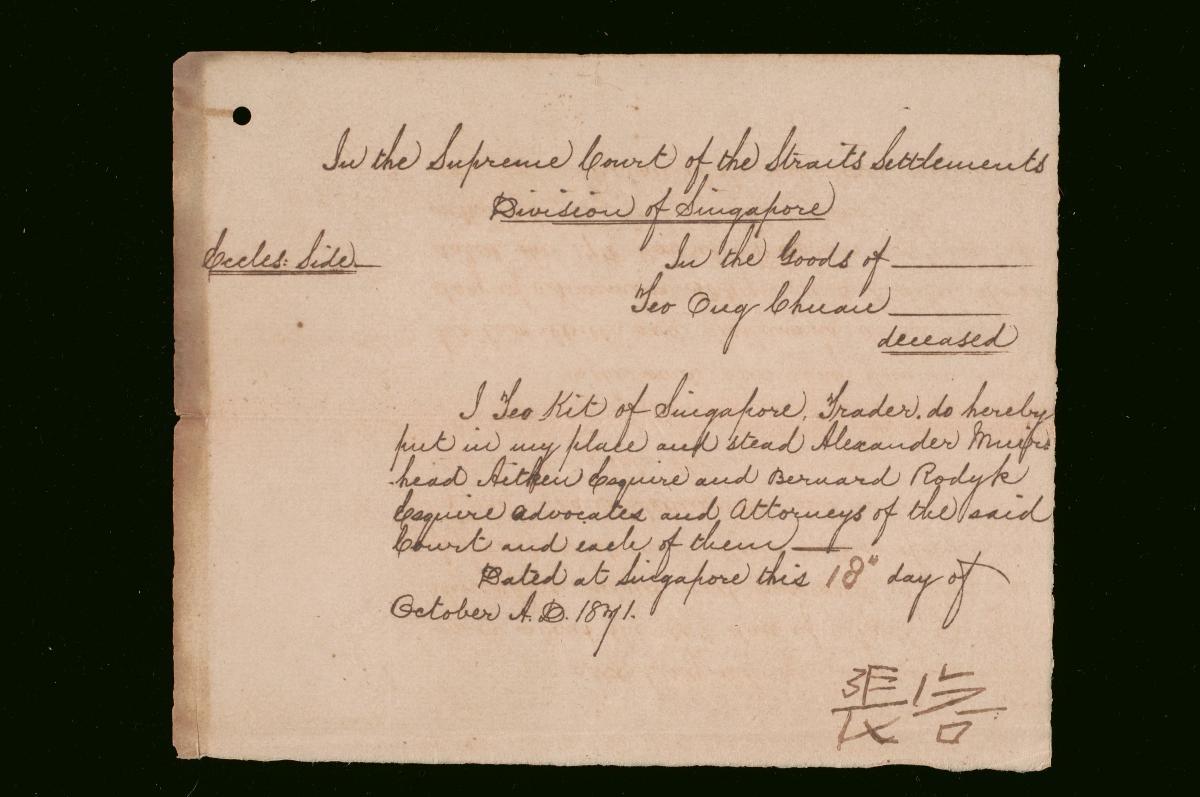 In the Supreme Court of the Straits Settlements
Division of Singapore
Eccles: Side
In the Goods of
Teo Ong Chuan
deceased
I Teo Kit of Singapore, Trader, do hereby
put in my place and stead Alexander Muir
head Aitken Esquire and Bernard Rodyk
Esquire Advocates and Attorneys of the said
Court and each of them
Dated at Singapore this 18th day of
October A.D. 1871.
張